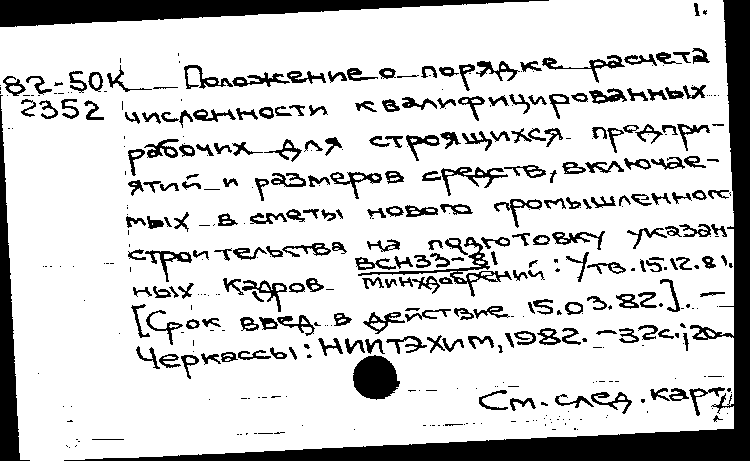 1.
82-50К Положение о порядке расчета
2352 численности квалифицированных
рабочих для строящихся предпри-
ятий и размеров средств, включае-
мых в сметы нового промышленного
строительства на подготовку указан-
ных кадров ВСН33-81 Минхдобрений: Утв. 15.12.81.
[Срок введ. в действие 15.03.82.]. —
Черкассы: НИИТЭХИМ, 1982. -32с.; 20см
См. след. карт.